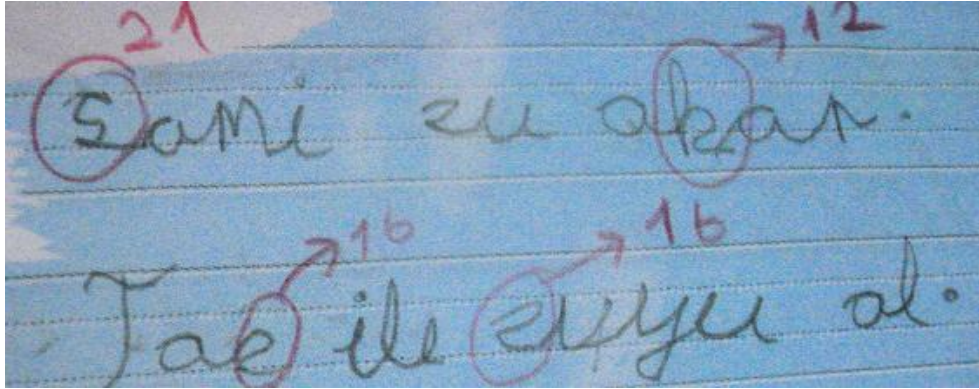 21 12
Sami su akar.
16 16
Tas ile suyu al.